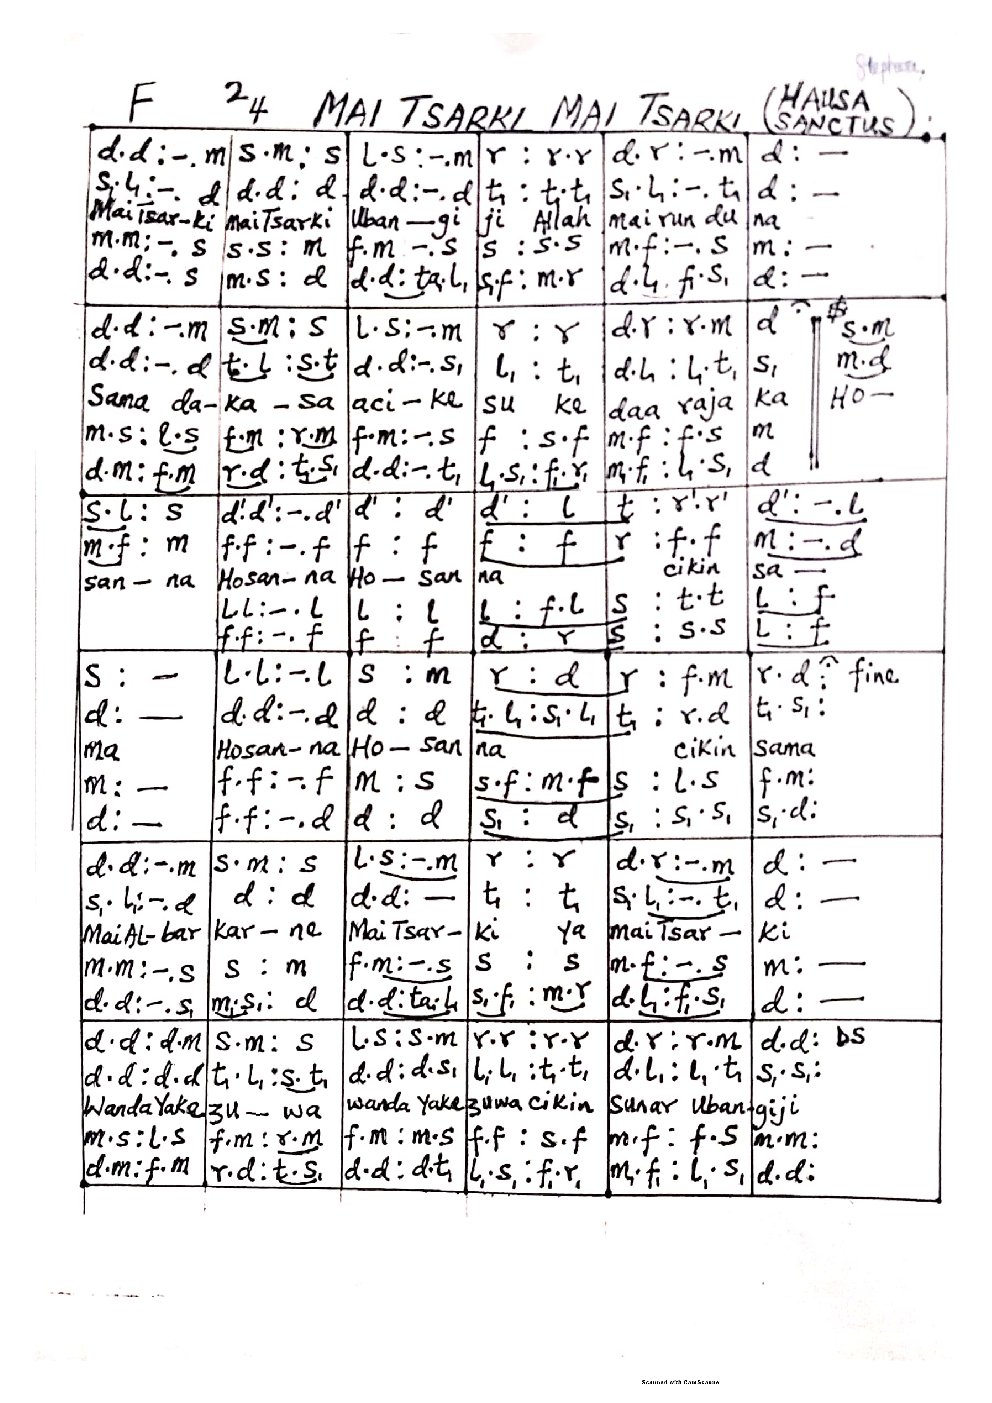 Stephen.
F 2/4 MAI TSARKI MAI TSARKI (HAUSA SANCTUS)
d.d:-.m | s.m:s | l.s:-.m | r : r.r | d.r:-.m | d: —
s₁.l₁:-. d | d.d: d | d.d:-.d | t₁ : t₁.t₁ | s₁.l₁:-. t₁ | d: —
Mai Tsar-ki | mai Tsarki | Uban —gi | ji Allah | mai run du | na
m.m:-. s | s.s: m | f.m -.s | s : s.s | m.f:-. s | m: —
d.d:-. s | m.s: d | d.d: ta.l₁ | s₁.f: m.r | d.l₁. f₁.s₁ | d: —
d.d:-.m | s.m: s | l.s:-.m | r : r | d.r: r.m | d 𝄐 || 𝄋 s.m
d.d:-. d | t.l :s.t | d.d:-. s₁ | l₁ : t₁ | d.l₁ : l₁.t₁ | s₁ || m.d
Sama da- | ka - sa | aci-ke | su ke | daa raja | ka || HO—
m.s: l.s | f.m : r.m | f.m:-.s | f : s.f | m.f : f.s | m
d.m: f.m | r.d : t.s₁ | d.d:-.t₁ | l₁.s₁:f₁.r₁ | m₁.f₁ : l₁.s₁ | d
s.l: s | d'.d':-.d' | d' : d' | d' : l | t : r'.r' | d':-.l
m.f: m | f.f:-.f | f : f | f : f | r : f.f | m:-.d
san — na | Hosan-na | Ho — san | na | cikin | sa —
l.l:-.l | l : l | l : f.l | s : t.t | l : f
f.f:-. f | f : f | d : r | s : s.s | l : f
s : — | l.l:-.l | s : m | r : d | r : f.m | r.d 𝄐: fine
d: — | d.d:-.d | d : d | t₁.l₁:s₁.l₁ | t₁ : r.d | t₁.s₁:
ma | Hosan-na | Ho — san | na | cikin | sama
m: — | f.f:-.f | m : s | s.f: m.f | s : l.s | f.m:
d: — | f.f:-.d | d : d | s₁ : d | s₁ : s₁.s₁ | s₁.d:
d.d:-.m | s.m: s | l.s:-.m | r : r | d.r:-.m | d: —
s₁.l₁:-.d | d : d | d.d: — | t₁ : t₁ | s₁.l₁:-. t₁ | d: —
Mai Al-bar | kar — ne | Mai Tsar- | ki ya | mai Tsar — | ki
m.m:-.s | s : m | f.m:-.s | s : s | m.f:-. s | m: —
d.d:-.s₁ | m₁.s₁: d | d.d:ta.l₁ | s₁.f₁ : m.r | d.l₁:f₁.s₁ | d: —
d.d:d.m | s.m: s | l.s:s.m | r.r :r.r | d.r: r.m | d.d: DS
d.d:d.d | t₁.l₁:s.t₁ | d.d:d.s₁ | l₁.l₁ :t₁.t₁ | d.l₁: l₁.t₁ | s₁.s₁:
Wanda Yake | zu — wa | wanda Yake | zuwa cikin | sunar Uban- | giji
m.s:l.s | f.m:r.m | f.m:m.s | f.f : s.f | m.f: f.s | m.m:
d.m:f.m | r.d:t.s₁ | d.d: d.t₁ | l₁.s₁:f₁.r₁ | m₁.f₁ : l₁.s₁ | d.d:
Scanned with CamScanner